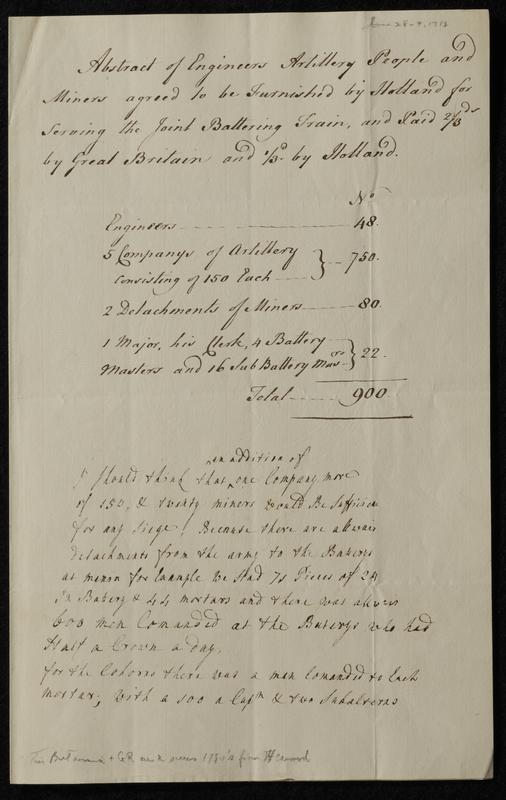 Abstract of Engineers Artillery People and
Miners agreed to be Furnished by Holland for
Serving the Joint Battering Train, and Paid 2/3ds
by Great Britain and 1/3d. by Holland.
No
Engineers 48.
5 Companys of Artillery
Consisting of 150 Each } 750.
2 Detachments of Miners 80.
1 Major, his Clerk, 4 Battery
Masters and 16 Sub Battery Masrs } 22.
Total 900.
an addition of
I should think that ^ one Company more
of 150, & twenty miners would Be Sufficien
for any Siege! Because there are allwais
detachments from the army to the Baterys
at menon for Example We Had 70 Pieces of 24
In Batery & 44 mortars and there was allways
600 men Comanded at the Baterys who had
Half a Crown a day.
for the Cohorns there was a man Comanded to Each
mortar; With a 100 a Captn & two Subalterns